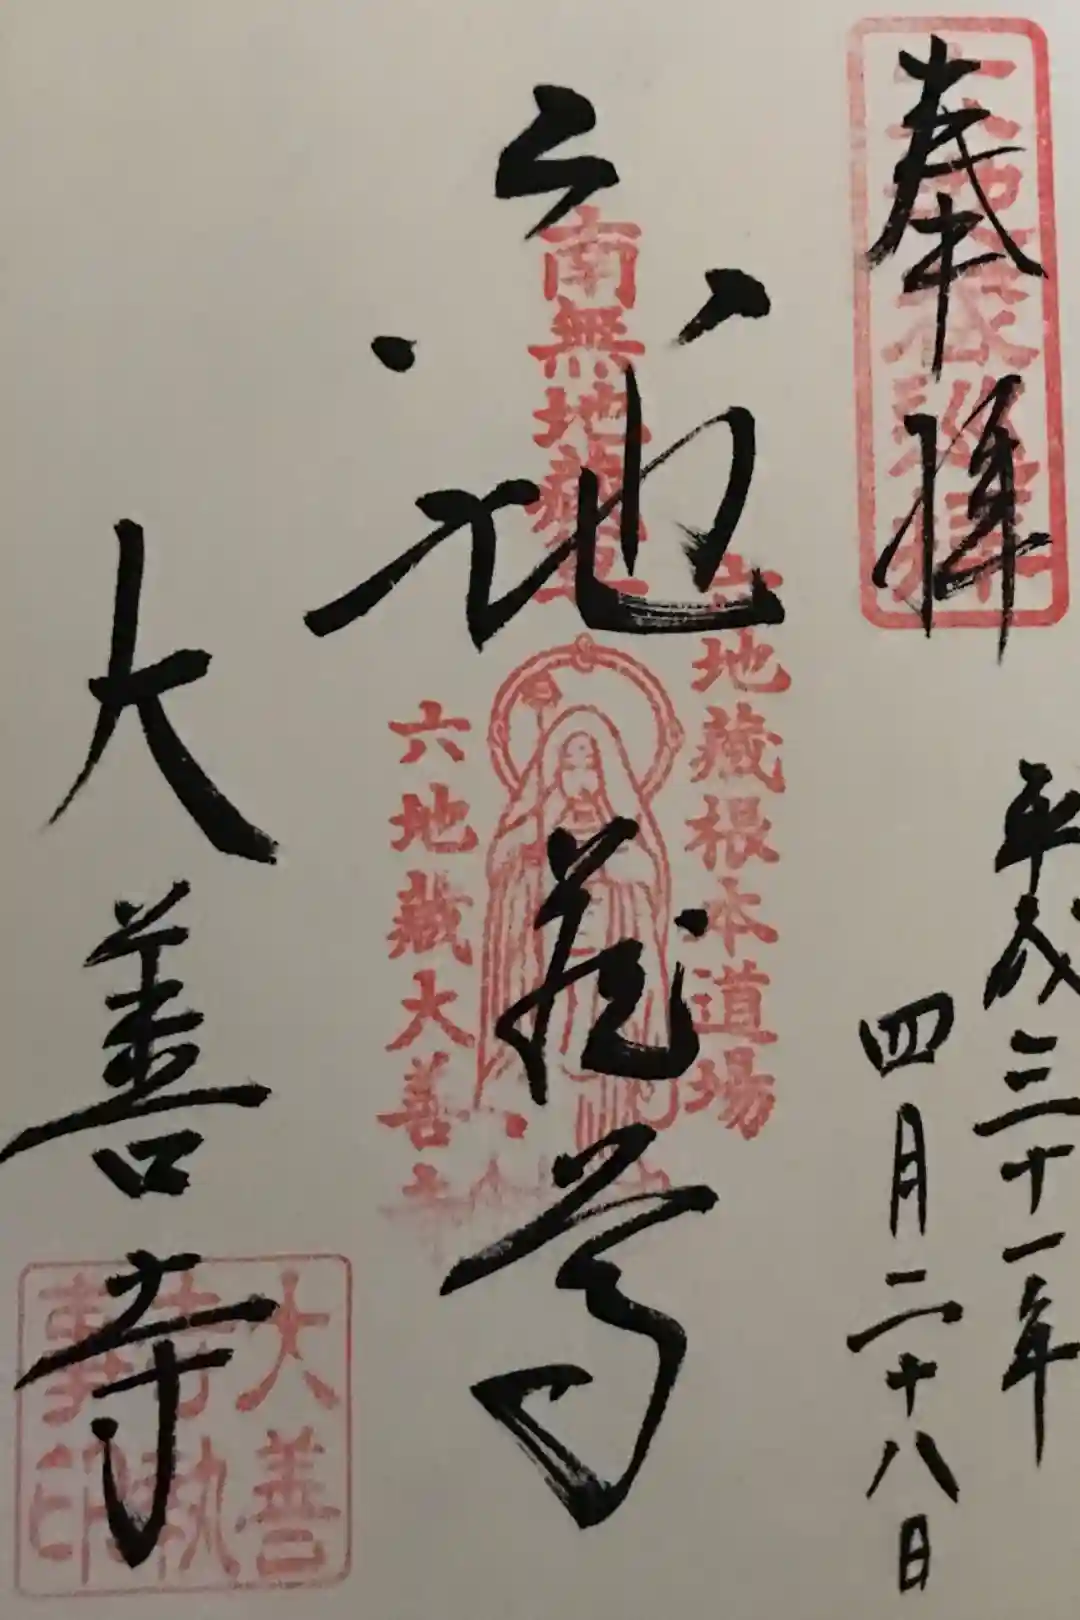 奉拝
平成三十一年
四月二十八日
六地蔵尊
南無地蔵尊
六地蔵根本道場
六地蔵大善寺
大善寺
大善
寺執
事印